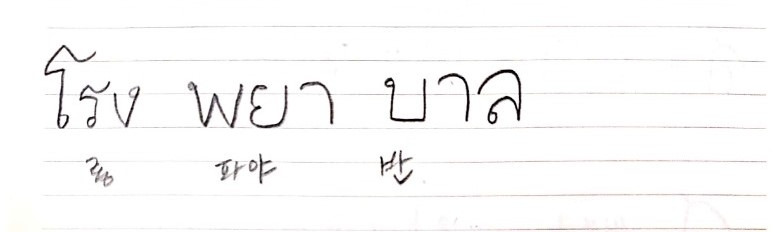 โรง พยา บาล
롱 파야 반